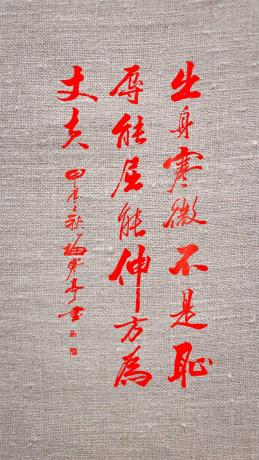 出身寒微不是恥
辱能屈能伸方為
丈夫
甲辰秋